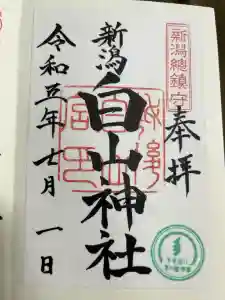 新潟總鎮守
奉拝
新潟
白山神社
令和五年七月一日